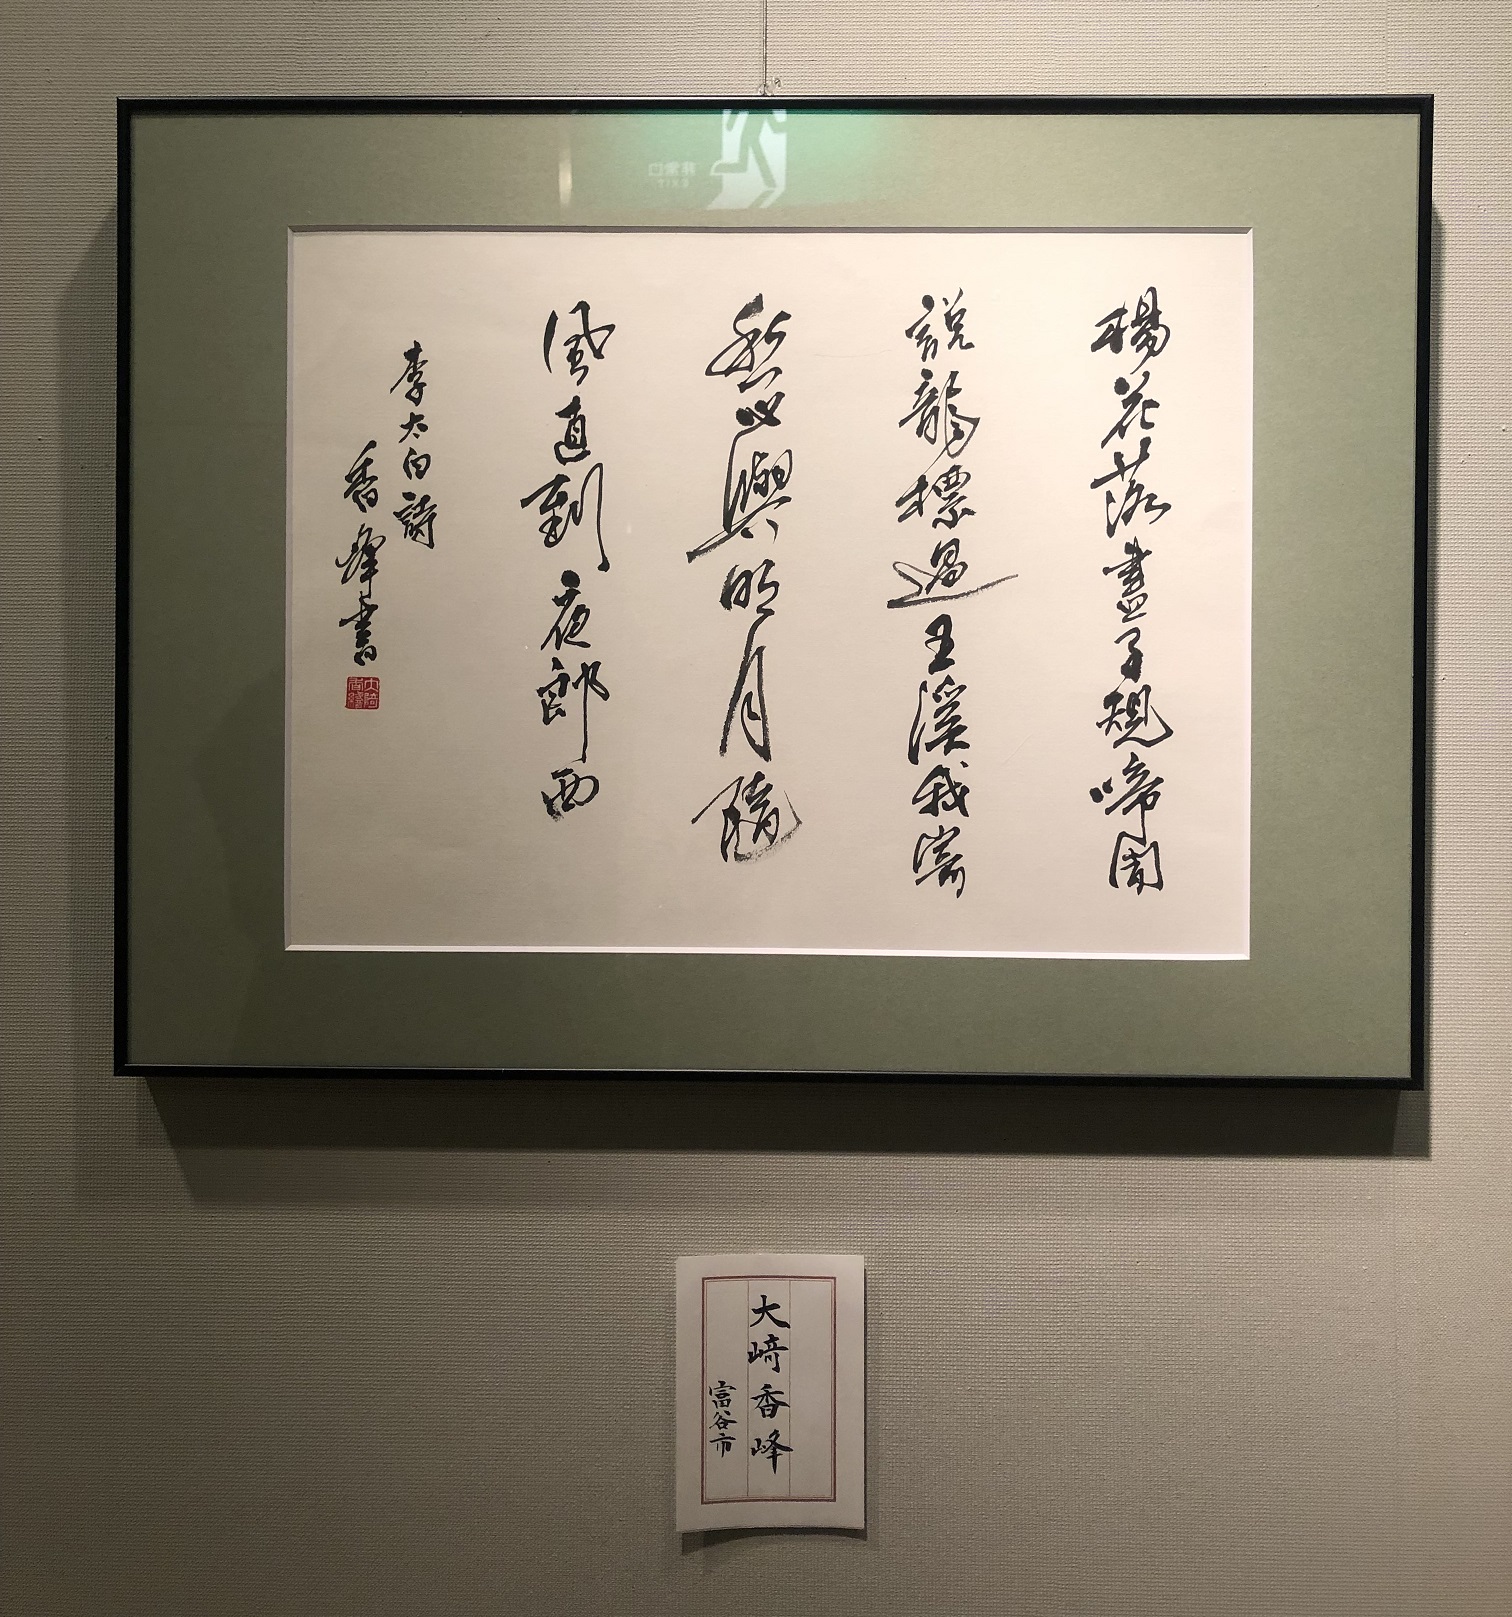 楊花落盡子規啼聞
説龍標過五溪我寄
愁心與明月隨
風直到夜郎西
李太白詩
香峰書
大﨑香峰
富谷市